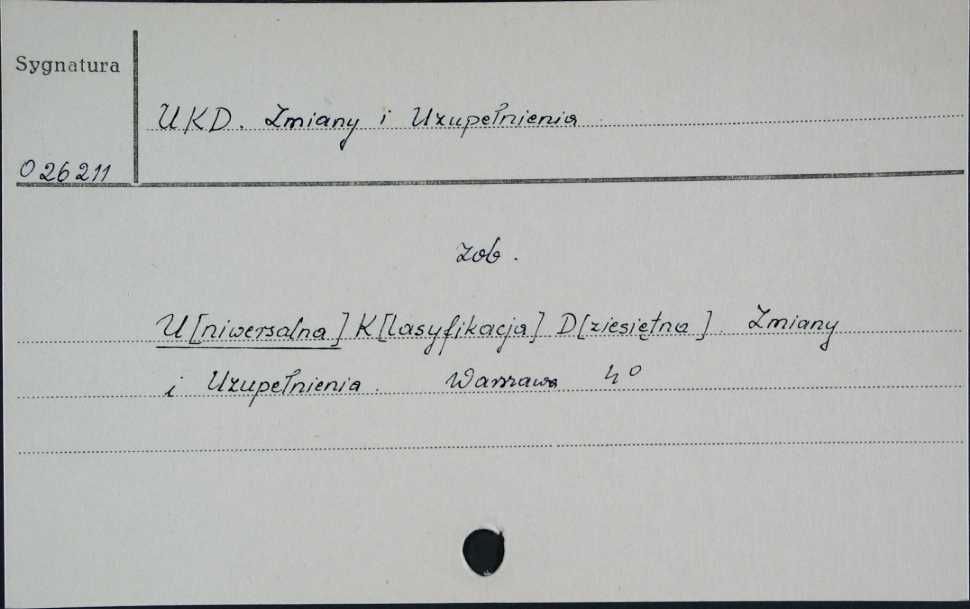 Sygnatura
UKD. Zmiany i Uzupełnienia
O 26211
zob.
U[niwersalna] K[lasyfikacja] D[ziesiętna]. Zmiany
i Uzupełnienia. Warszawa 4°